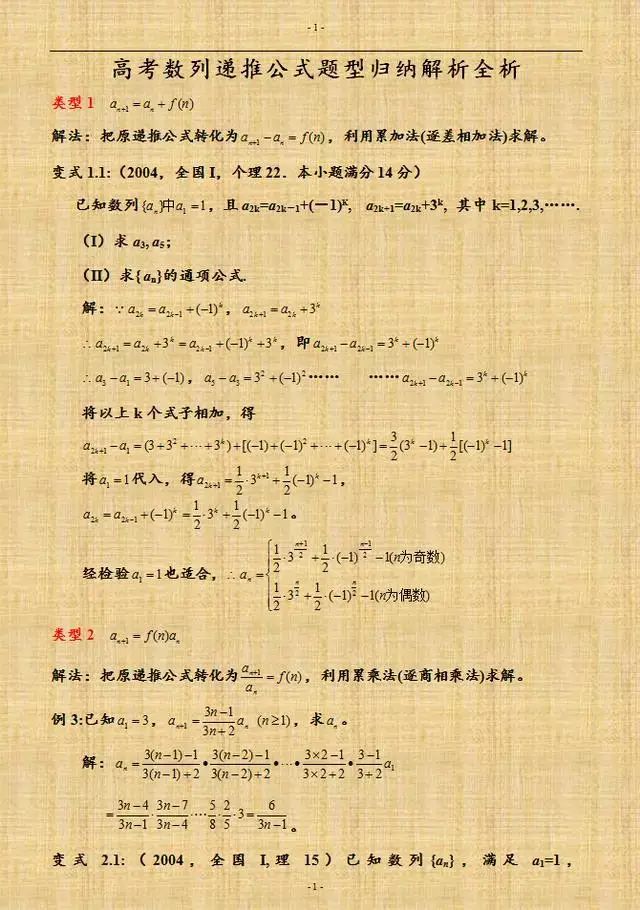 - 1 -
高考数列递推公式题型归纳解析全析
类型 1 a_{n+1} = a_n + f(n)
解法：把原递推公式转化为 a_{n+1} − a_n = f(n)，利用累加法(逐差相加法)求解。
变式 1.1:（2004，全国 I，个理 22．本小题满分 14 分）
已知数列{a_n}中a_1 = 1，且 a2k=a2k−1+(－1)^K, a2k+1=a2k+3^k, 其中 k=1,2,3,…….
（I）求 a3, a5；
（II）求{ an}的通项公式.
解：∵ a_{2k} = a_{2k−1} + (−1)^k，a_{2k+1} = a_{2k} + 3^k
∴ a_{2k+1} = a_{2k} + 3^k = a_{2k−1} + (−1)^k + 3^k，即 a_{2k+1} − a_{2k−1} = 3^k + (−1)^k
∴ a_3 − a_1 = 3 + (−1)，a_5 − a_3 = 3^2 + (−1)^2 …… ……a_{2k+1} − a_{2k−1} = 3^k + (−1)^k
将以上 k 个式子相加，得
a_{2k+1} − a_1 = (3 + 3^2 + ⋯ + 3^k) + [(−1) + (−1)^2 + ⋯ + (−1)^k] = \frac{3}{2}(3^k − 1) + \frac{1}{2}[(−1)^k − 1]
将 a_1 = 1 代入，得 a_{2k+1} = \frac{1}{2}·3^{k+1} + \frac{1}{2}(−1)^k − 1，
a_{2k} = a_{2k−1} + (−1)^k = \frac{1}{2}·3^k + \frac{1}{2}(−1)^k − 1。
经检验 a_1 = 1 也适合，∴ a_n = { \frac{1}{2}·3^{\frac{n+1}{2}} + \frac{1}{2}·(−1)^{\frac{n−1}{2}} − 1(n为奇数)
\frac{1}{2}·3^{\frac{n}{2}} + \frac{1}{2}·(−1)^{\frac{n}{2}} − 1(n为偶数)
类型 2 a_{n+1} = f(n)a_n
解法：把原递推公式转化为 \frac{a_{n+1}}{a_n} = f(n)，利用累乘法(逐商相乘法)求解。
例 3:已知 a_1 = 3，a_{n+1} = \frac{3n−1}{3n+2} a_n (n ≥ 1)，求 a_n。
解：a_n = \frac{3(n−1)−1}{3(n−1)+2} • \frac{3(n−2)−1}{3(n−2)+2} • ⋯ • \frac{3×2−1}{3×2+2} • \frac{3−1}{3+2} a_1
= \frac{3n−4}{3n−1}·\frac{3n−7}{3n−4}⋯·\frac{5}{8}·\frac{2}{5}·3 = \frac{6}{3n−1}。
变式 2.1:（2004，全国 I,理 15）已知数列{an}，满足 a1=1，
- 1 -